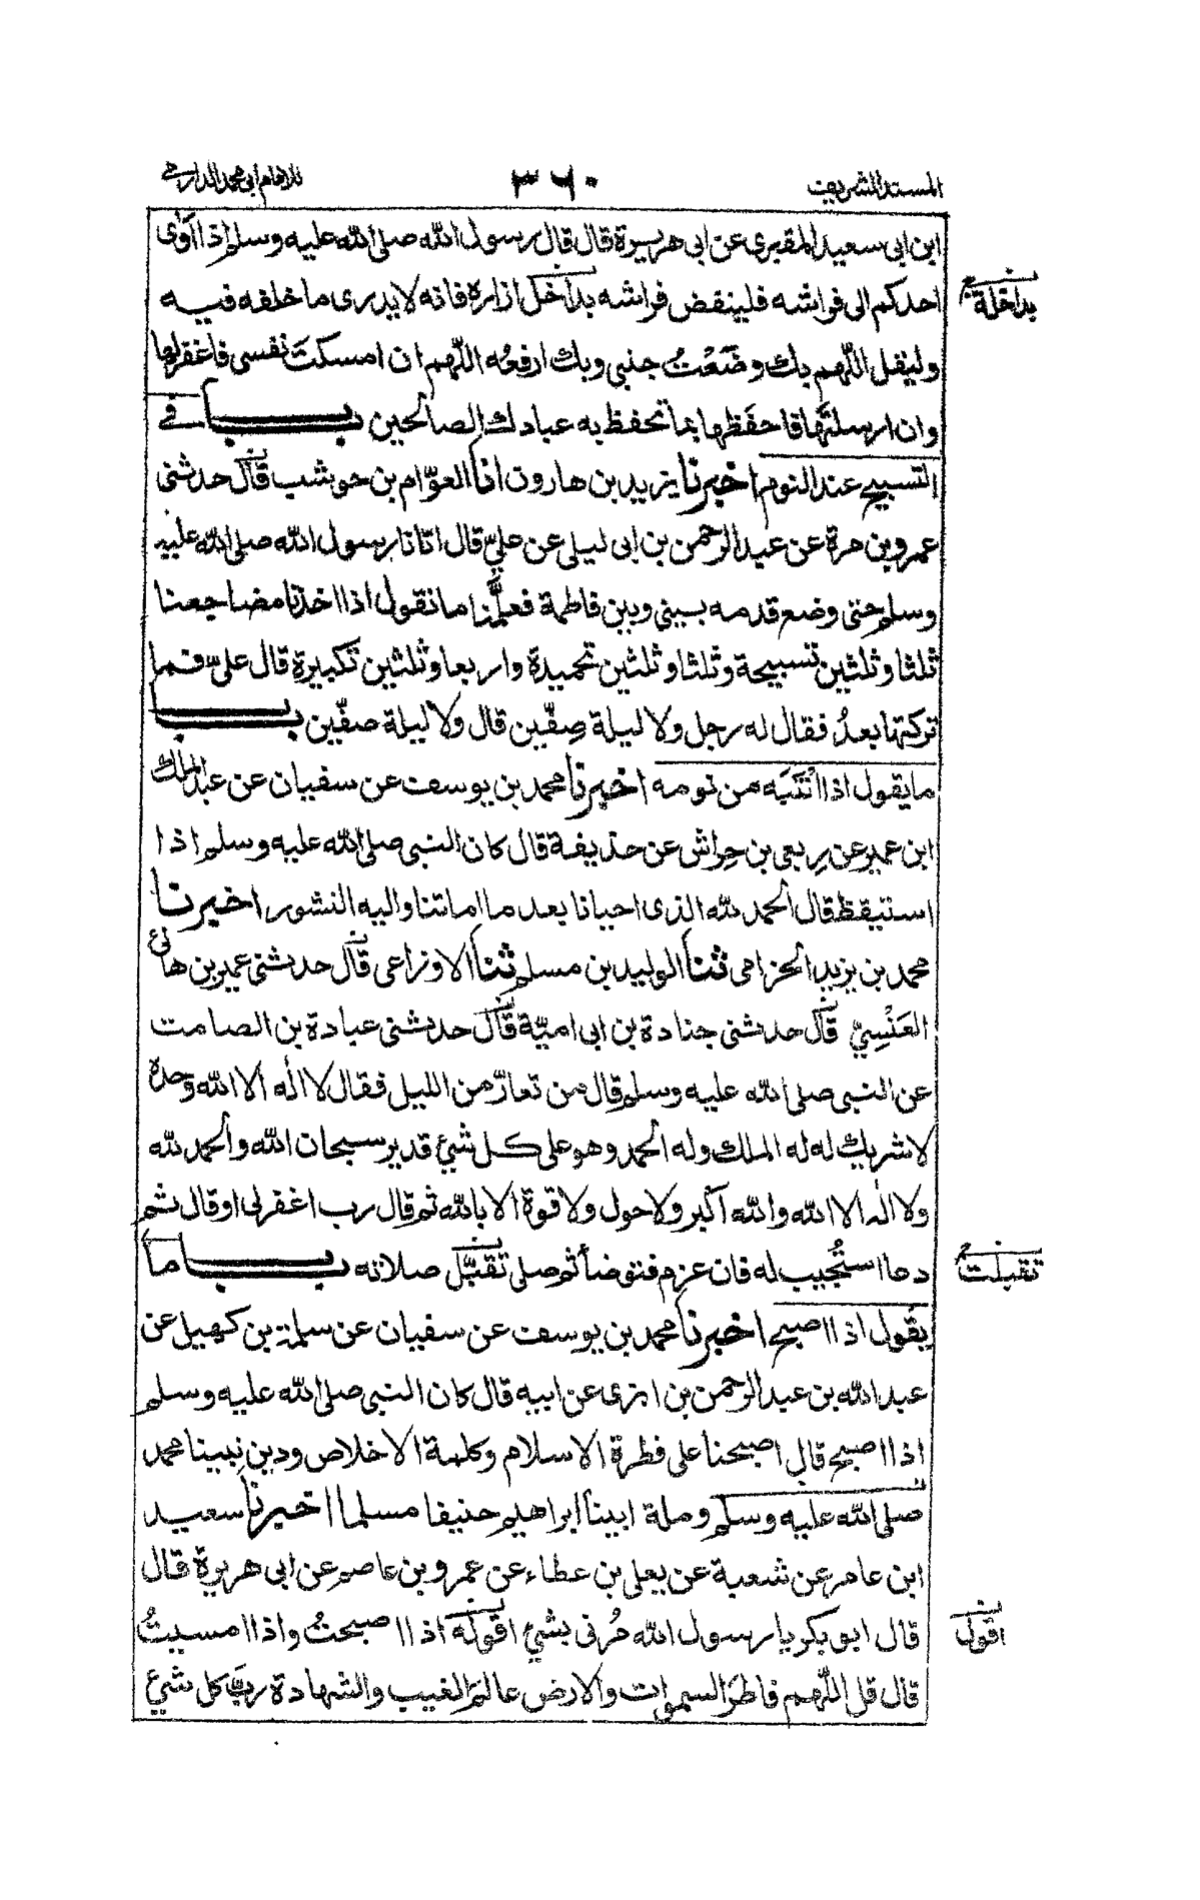 المسند الشريف
٣٦٠
للامام ابى محمد الدارمى
ابن ابى سعيد المقبرى عن ابى هريرة قال قال رسول الله صلى الله عليه وسلم اذا اوٰى
احدكم الى فراشه فلينقض فراشه بداخل ازاره فانه لا يدرى ما خلفه فيه
بداخلة
وليقل اللّهم بك وضَعْتُ جنبى وبك ارفعُه اللّهم ان امسكتَ نفسى فاغفرلها
وان ارسلتَها فاحفَظها بما تحفظ به عبادك الصالحين باب فى
التسبيح عند النوم اخبرنا يزيد بن هارون انا العوّام بن حوشب قال حدثنى
عمرو بن مرة عن عبد الرحمن بن ابى ليلى عن علىّ قال اتانا رسول الله صلى الله عليه
وسلم حتى وضع قدمه بينى وبين فاطمة فعلّمَنا ما نقول اذا اخذنا مضاجعنا
ثلثا وثلثين تسبيحة وثلثا وثلثين تحميدة واربعا وثلثين تكبيرة قال علىّ فما
تركتها بعدُ فقال له رجل ولا ليلة صِفّين قال ولا ليلة صفّين باب
ما يقول اذا انْتَبَه من نومه اخبرنا محمد بن يوسف عن سفيان عن عبد الملك
ابن عمير عن رِبعى بن حِراش عن حذيفة قال كان النبى صلى الله عليه وسلم اذا
استيقظ قال الحمد لله الذى احيانا بعد ما اماتنا واليه النشور اخبرنا
محمد بن يزيد الحزامى ثنا الوليد بن مسلم ثنا الاوزاعى قال حدثنى عمير بن هانئ
العَنْسِىّ قال حدثنى جنادة بن ابى اميّة قال حدثنى عبادة بن الصامت
عن النبى صلى الله عليه وسلم قال من تعارّ من الليل فقال لا اله الا الله وحده
لا شريك له له الملك وله الحمد وهو على كل شئ قدير سبحان الله والحمد لله
ولا اله الا الله والله اكبر ولا حول ولا قوة الا بالله ثم قال رب اغفرلى او قال ثم
دعا استُجيب له فان عزم فتوضأ ثم صلى تقبّل صلاته باب ما
تقبلت
يقول اذا اصبح اخبرنا محمد بن يوسف عن سفيان عن سلمة بن كهيل عن
عبد الله بن عبد الرحمن بن ابزى عن ابيه قال كان النبى صلى الله عليه وسلم
اذا اصبح قال اصبحنا على فطرة الاسلام وكلمة الاخلاص ودين نبينا محمد
صلى الله عليه وسلم وملة ابينا ابراهيم حنيفا مسلما اخبرنا سعيد
ابن عامر عن شعبة عن يعلى بن عطاء عن عمرو بن عاصم عن ابى هريرة قال
قال ابو بكر يا رسول الله مُرنى بشئ اقوله اذا اصبحتُ واذا امسيتُ
اقول
قال قل اللّهم فاطرَ السموات والارض عالمَ الغيب والشهادة ربَّ كل شئ